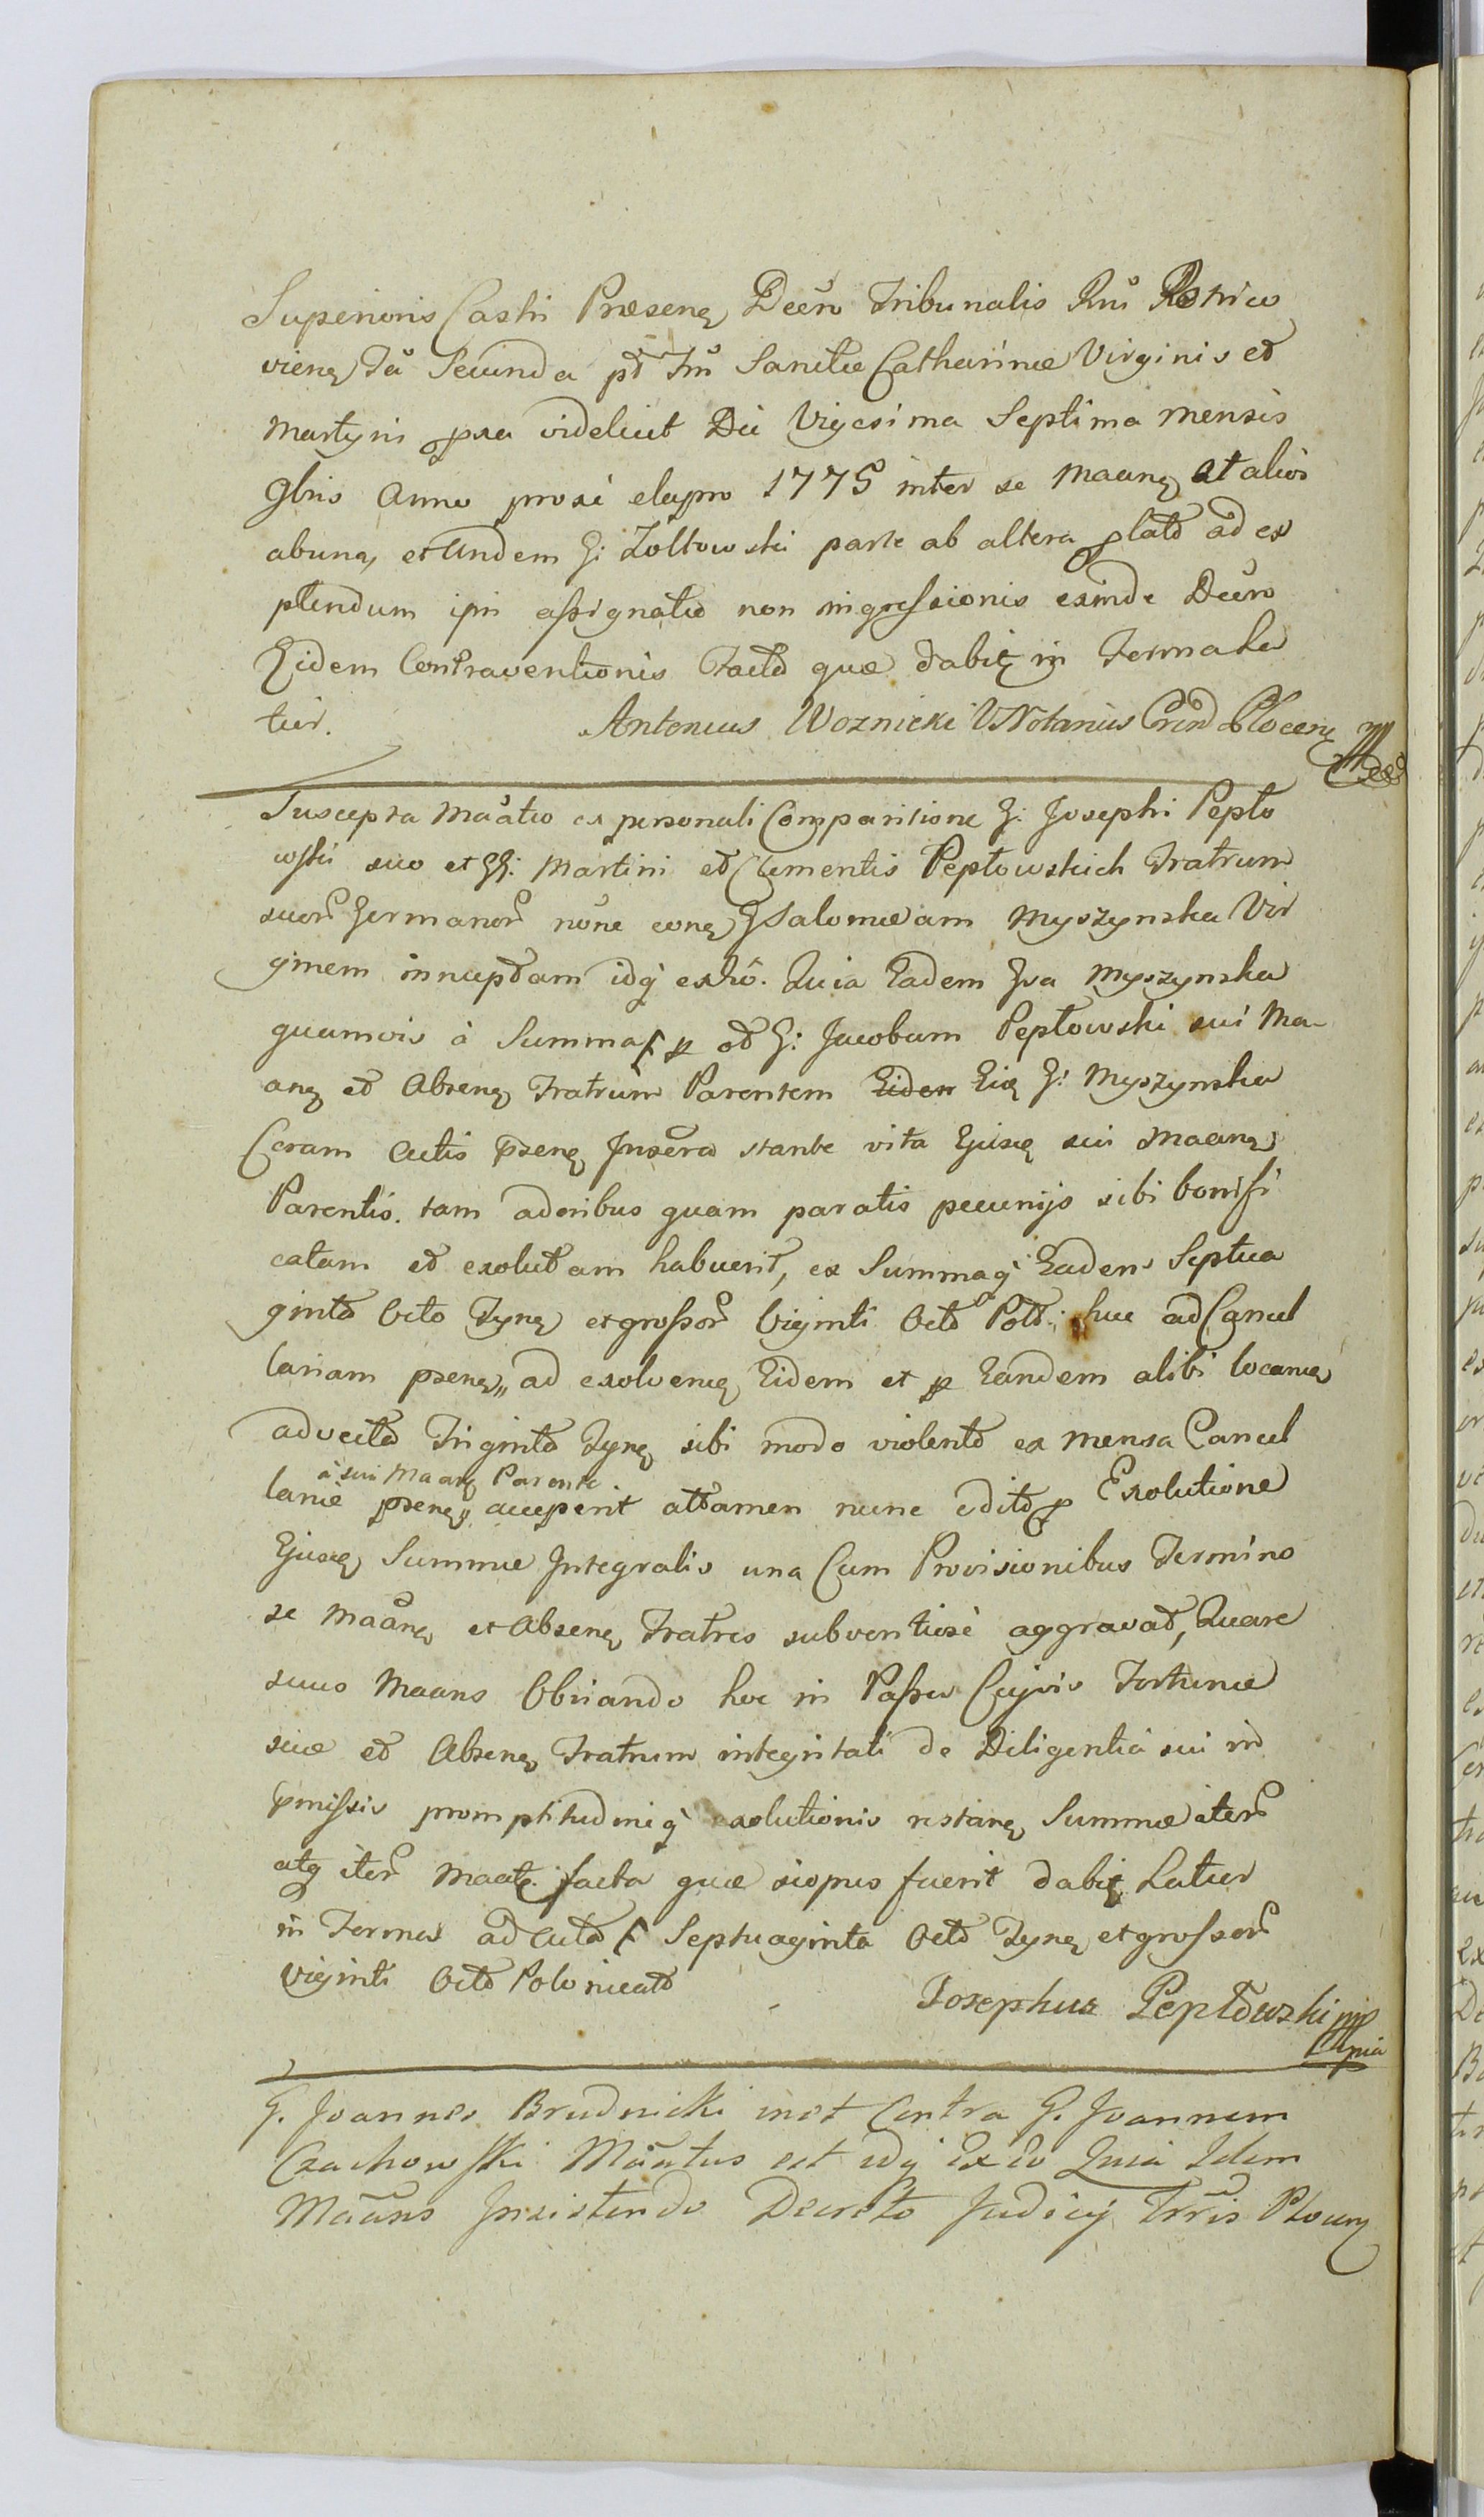 Superioris Castri Præsenę Decŕo Tribunalis Rni Petrico
vienę Fâ Secunda pt Fm Sanctæ Catharinæ Virginis et
Martyris pxa videlicet Die Vigesima Septima Mensis
9bris Anno proxi elapso 1775 inter se Maanę At alios
abuna, et Eundem G: Zoltowski parte ab altera plato ad ex
plendum ipsi assignato non ingressionis exinde Decŕo
Eidem Contraventionis Facto quæ dabię in Terma La
tius. Antonius Woznicki VNotarius Cŕend Plocenę mp
Suscepta Maâtio ex personali Comparitione G: Josephi Pepło
wski suo et GG: Martini et Clementis Pepłowskich Fratrum
suoŕ Germanoŕ nône conę GSalomeam Myszynska Vir
ginem innuptam idq exhô. Quia Eadem Gsa Myszynska
quamvis à Summa f p od G: Jacobum Pepłowski sui Ma-
anę et Absenę Fratrum Parentem Eiden Eię G: Myszynska
Coram Actis psenę Inserô stante vita Ejusę sui Maanę
Parentis. tam adoribus quam paratis pecunijs sibi bonifi
catam et exolutam habuerit, ex Summaq Eadem Septua
ginto Octo Tynę et grossoŕ Viginti Octo Polt: huc ad Cancel
lariam psenę,, ad exolvenę Eidem et p Eandem alibi locanę
advecto Triginto Tynę sibi modo violento ex mensa Cancel
à sui Maanę Parente
lariæ psenę,, acceperit attamen nunc edito p Exolutione
Ejusę Summæ Integralis una Cum Provisionibus Termino
se Maânę et Absenę Fratres subventiosè aggravat, Quare
suus Maans Obviando hoc in Passu Cujvis Fortunæ
suæ et Absenę Fratrum integritati de Diligentia sui in
pmissis promptitudiniq exolutionis restanę Summæ iteŕ
atq iteŕ Maate. facta quæ siopus fuerit dabię Latius
in Termo ad Acta f Septuaginta Octo Tynę et grossoŕ
Viginti Octo Polonicato
Josephus Pepłowski mp
mpia
G. Joannes Brudnicki inst Contra G. Joannem
Czachowski Maâtus est idq Exhô Quia Idem
Maâns Insistendo Decreto Judicij Trris Plocenę